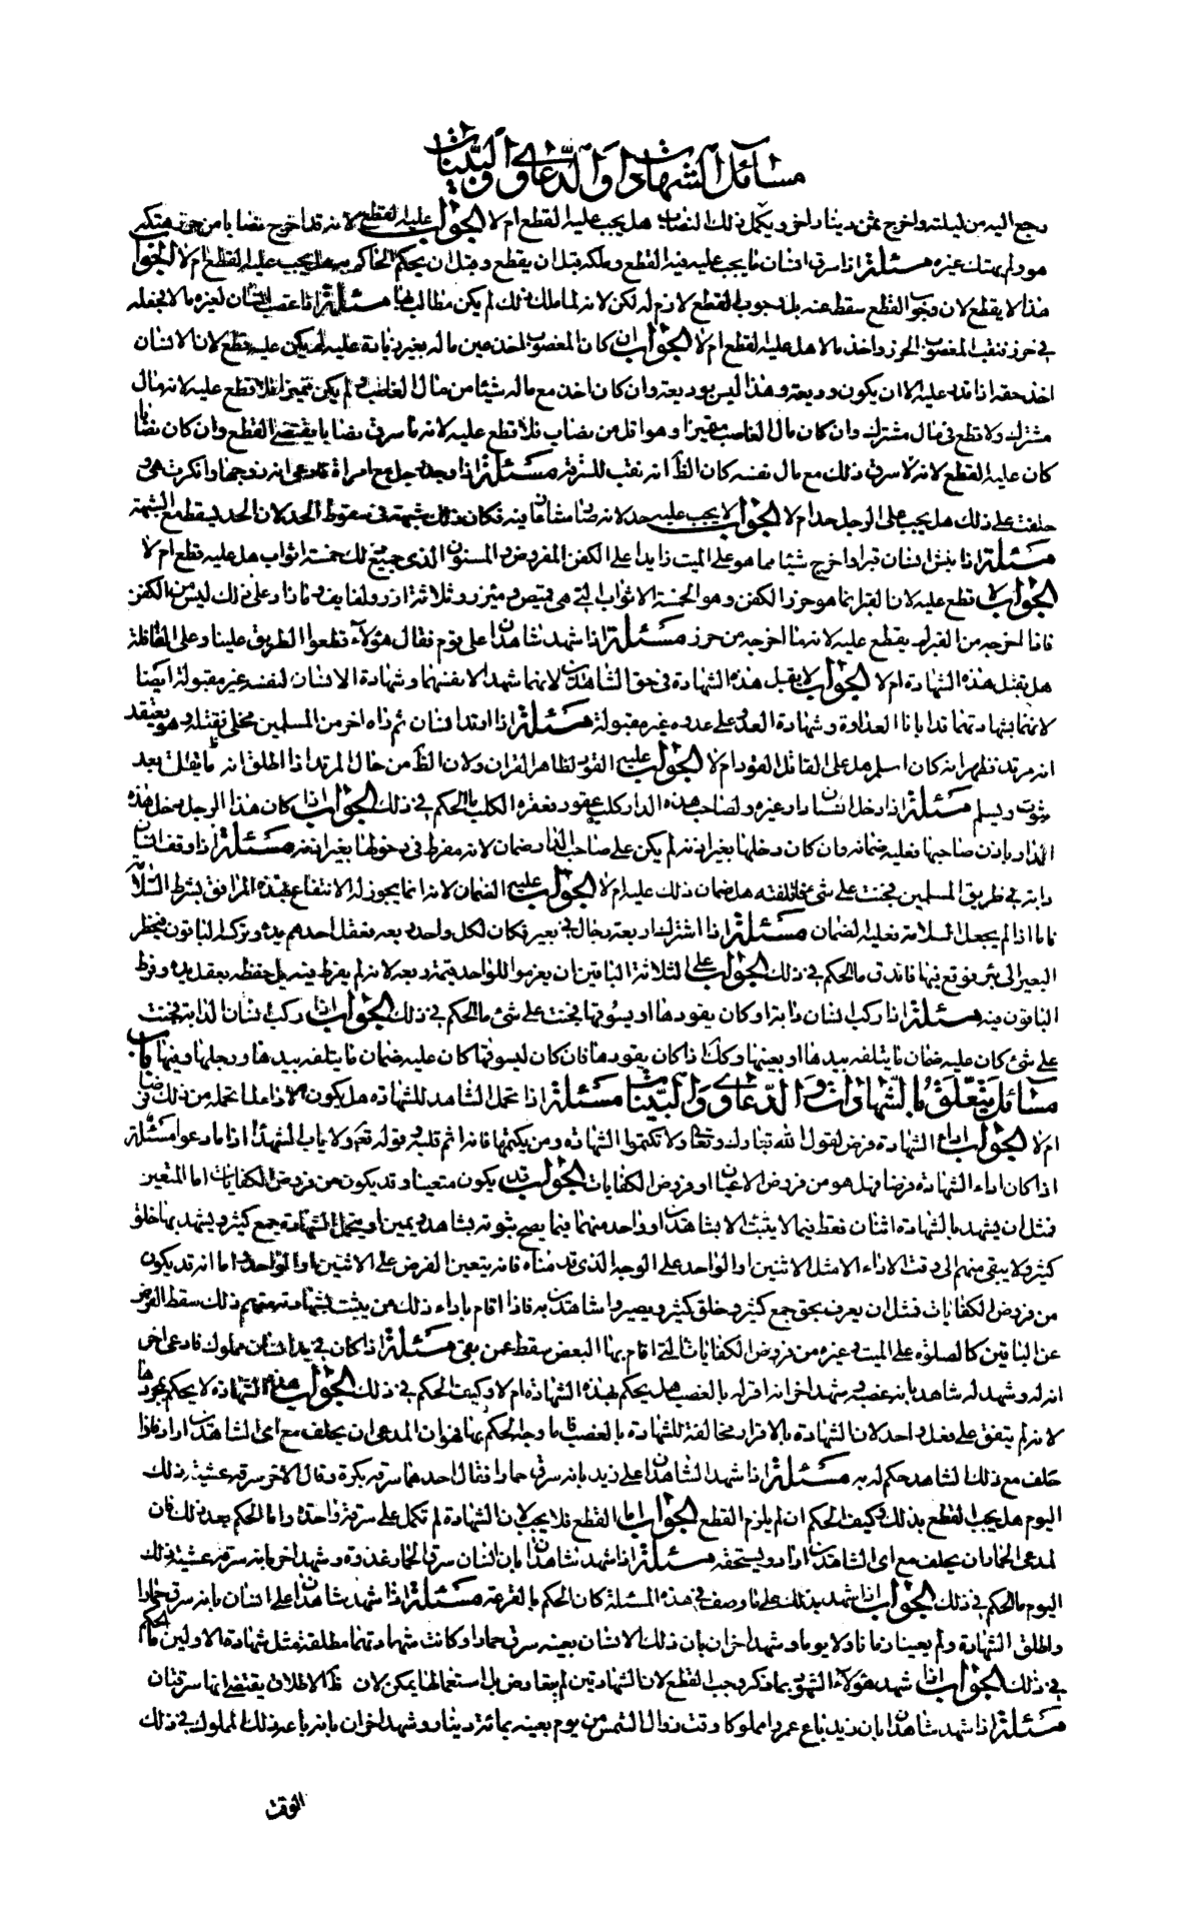 مسائل الشهادات والدعاوي والبينات
رجع اليه من ليلته واخرج ثمن دينار اخر ويكمل ذلك النصاب هل يجب عليه القطع ام لا الجواب عليه القطع لانه قد اخرج نصابا من حرز هتكه
هو ولم يهتك غيره مسئلة اذا سرق انسان ما يجب عليه فيه القطع وملكه قبل ان يقطع وقبل ان يحكم الحاكم به هل يجب عليه القطع ام لا الجواب
هذا لا يقطع لان وجوب القطع سقط عنه بل وجوب القطع لازم له لكن لانه لما ملك ذلك لم يكن مطالب بها مسئلة اذا غصب انسان لغيره مالا فجعله
في حرز فنقب المغصوب الحرز واخذ مالا هل عليه القطع ام لا الجواب ان كان المغصوب اخذ عين ماله بغير زيادة عليه لم يكن عليه قطع لان الانسان
اخذ حقه اذا قدر عليه الا ان يكون وديعة وهذا ليس بوديعة وان كان اخذ مع ماله شيئا من مال الغاصب ولم يكن متميزا فلا قطع عليه لانه مال
مشترك ولا قطع في مال مشترك وان كان مال الغاصب متميزا وهو اقل من نصاب فلا قطع عليه لانه ما سرق نصابا يقتضي القطع وان كان نصابا
كان عليه القطع لانه لما سرق ذلك مع مال نفسه كان الظاهر انه نقب للسرقة مسئلة اذا وجد رجل مع امراة فادعى انه زوجها وانكرت هي و
حلفت على ذلك هل يجب على الرجل حد ام لا الجواب لا يجب عليه حد لانه صار مشافا فيه فكان ذلك شبهة في سقوط الحد لان الحد يسقط مع الشبهة
مسئلة اذا نبش انسان قبرا واخرج شيئا مما هو على الميت زايدا على الكفن المفروض والمسنون الذى جميع ذلك خمسة اثواب هل عليه قطع ام لا
الجواب لا قطع عليه لان القبر انما هو حرز الكفن وهو الخمسة الاثواب التي هي قميص وميزر وثلاثة ازر ولفايف وما زاد على ذلك ليس من الكفن
فاذا اخرجه من القبر لم يقطع عليه لانه ما اخرجه من حرز مسئلة اذا شهد شاهدان على قوم فقال هؤلاء قطعوا الطريق علينا وعلى القافلة
هل يقبل هذه الشهادة ام لا الجواب لا يقبل هذه الشهادة في حق الشاهدين لانهما شهدا لانفسهما وشهادة الانسان لنفسه غير مقبولة ايضا
لانهما بشهادتهما قد ابانا العداوة وشهادة العدو على عدوه غير مقبولة مسئلة اذا ارتد انسان ثم راه اخر من المسلمين مخلى فقتله وهو يعتقد
انه مرتد فظهر انه كان اسلم هل على القاتل القود ام لا الجواب عليه القود لظاهر القران ولان الظاهر من حال المرتد اذا اطلق انه ما يقلل بعد
يتوب ويسلم مسئلة اذا دخل انسان دار غيره ولصاحب هذه الدار كلب عقور فعقره الكلب ما الحكم في ذلك الجواب اذا كان هذا الرجل دخل هذه
الدار باذن صاحبها فعليه ضمانه وان كان دخلها بغير اذنه لم يكن على صاحب الدار ضمان لانه مفرط في دخولها بغير اذنه مسئلة اذا وقف انسان
دابته في طريق المسلمين فجنت على شئ فاتلفته هل ضمان ذلك عليه ام لا الجواب عليه الضمان لانه انما يجوز له الانتفاع بهذه المرافق بشرط السلامة
فاما اذا لم يجعل السلامة فعليه الضمان مسئلة اذا اشترك اربعة رجال في بعير فكان لكل واحد ربعه فعقل احدهم يده وتركه الباقون فتخطى
البعير الى بئر فوقع فيها فاندق ما الحكم في ذلك الجواب على الثلاثة الباقين ان يغرموا للواحد قيمة ربعه لانه لم يفرط فيه بل حفظه بعقل يده وفرط
الباقون فيه مسئلة اذا ركب انسان دابة او كان يقودها او يسوقها فجنت على شئ ما الحكم في ذلك الجواب اذا ركب انسان الدابة فجنت
على شئ كان عليه ضمان ما يتلفه بيدها او بعينها وكذا اذا كان يقودها فان كان يسوقها كان عليه ضمان ما يتلفه بيدها ورجلها وفيها باب
مسائل يتعلق بالشهادات والدعاوي والبينات مسئلة اذا تحمل الشاهد للشهادة هل يكون الاداء لما تحمله من ذلك فرضا
ام لا الجواب اداء الشهادة فرض لقول الله تبارك وتعالى ولا تكتموا الشهادة ومن يكتمها فانه اثم قلبه وقوله تعالى ولا ياب الشهداء اذا ما دعوا مسئلة
اذا كان اداء الشهادة فرضا فهل هو من فروض الاعيان او فروض الكفايات الجواب قد يكون متعينا وقد يكون من فروض الكفايات اما المتعين
فمثل ان يشهد بالشهادة اثنان فقط فيما لا يثبت الا بشاهدين او واحد منهما فيما يصح ثبوته بشاهد ويمين او يتحمل الشهادة جمع كثير ويشهد بها خلق
كثير ولا يبقى منهم الى وقت الاداء الا مثل الاثنين او الواحد على الوجه الذى قدمناه فانه يتعين الفرض على الاثنين او الواحد اما انه قد يكون
من فروض الكفايات فمثل ان يعرف بحق جمع كثير وخلق كثير ويصيروا شاهدين به فاذا اقام باداء ذلك من يثبت بشهادته منهم ذلك سقط الفرض
عن الباقين كالصلوة على الميت وغيره من فروض الكفايات التي اذا قام بها البعض سقط عمن بقي مسئلة اذا كان في يد انسان مملوك فادعى اخر
انه له وشهد له شاهد بانه غصبه وشهد اخر انه اقر له بالغصب هل يحكم بهذه الشهادة ام لا وكيف الحكم في ذلك الجواب هذه الشهادة لا يحكم بمجردها
لانه لم يتفق على فعل واحد لان الشهادة بالاقرار مخالفة للشهادة بالغصب فاما وجه الحكم بها فهو ان المدعى ان يحلف مع اى الشاهدين اراد فاذا
حلف مع ذلك الشاهد حكم له به مسئلة اذا شهد الشاهدان على زيد بانه سرق حمارا فقال احدهما سرقه بكرة وقال الاخر سرقه عشية ذلك
اليوم هل يجب القطع بذلك وكيف الحكم ان لم يلزم القطع الجواب اما القطع فلا يجب لان الشهادة لم تكمل على سرقة واحدة واما الحكم بعد ذلك فان
لمدعى الحمار ان يحلف مع اى الشاهدين اراد ويستحقه مسئلة اذا شهد شاهدان بان انسان سرق الحمار غدوة وشهد اخر بانه سرقه عشية ذلك
اليوم ما الحكم في ذلك الجواب اذا شهد بذلك على ما وصف في هذه المسئلة كان الحكم بالقرعة مسئلة اذا شهد شاهدان على انسان بانه سرق حمارا
واطلق الشهادة ولم يعينا زمانا ولا يوما وشهد اخران بان ذلك الانسان بعينه سرق حمارا وكانت شهادتهما مطلقة مثل شهادة الاولين ما الحكم
في ذلك الجواب اذا شهد هؤلاء الشهود بما ذكر وجب القطع لان الشهادتين لم يتعارض بل استعمالها يمكن لان ظاهر الاطلاق يقتضى انها سرقتان
مسئلة اذا شهد شاهدان بان زيد باع عمروا مملوكا وقت زوال الشمس من يوم بعينه بمائة دينار وشهد اخران بانه باعه ذلك المملوك في ذلك
الوقت